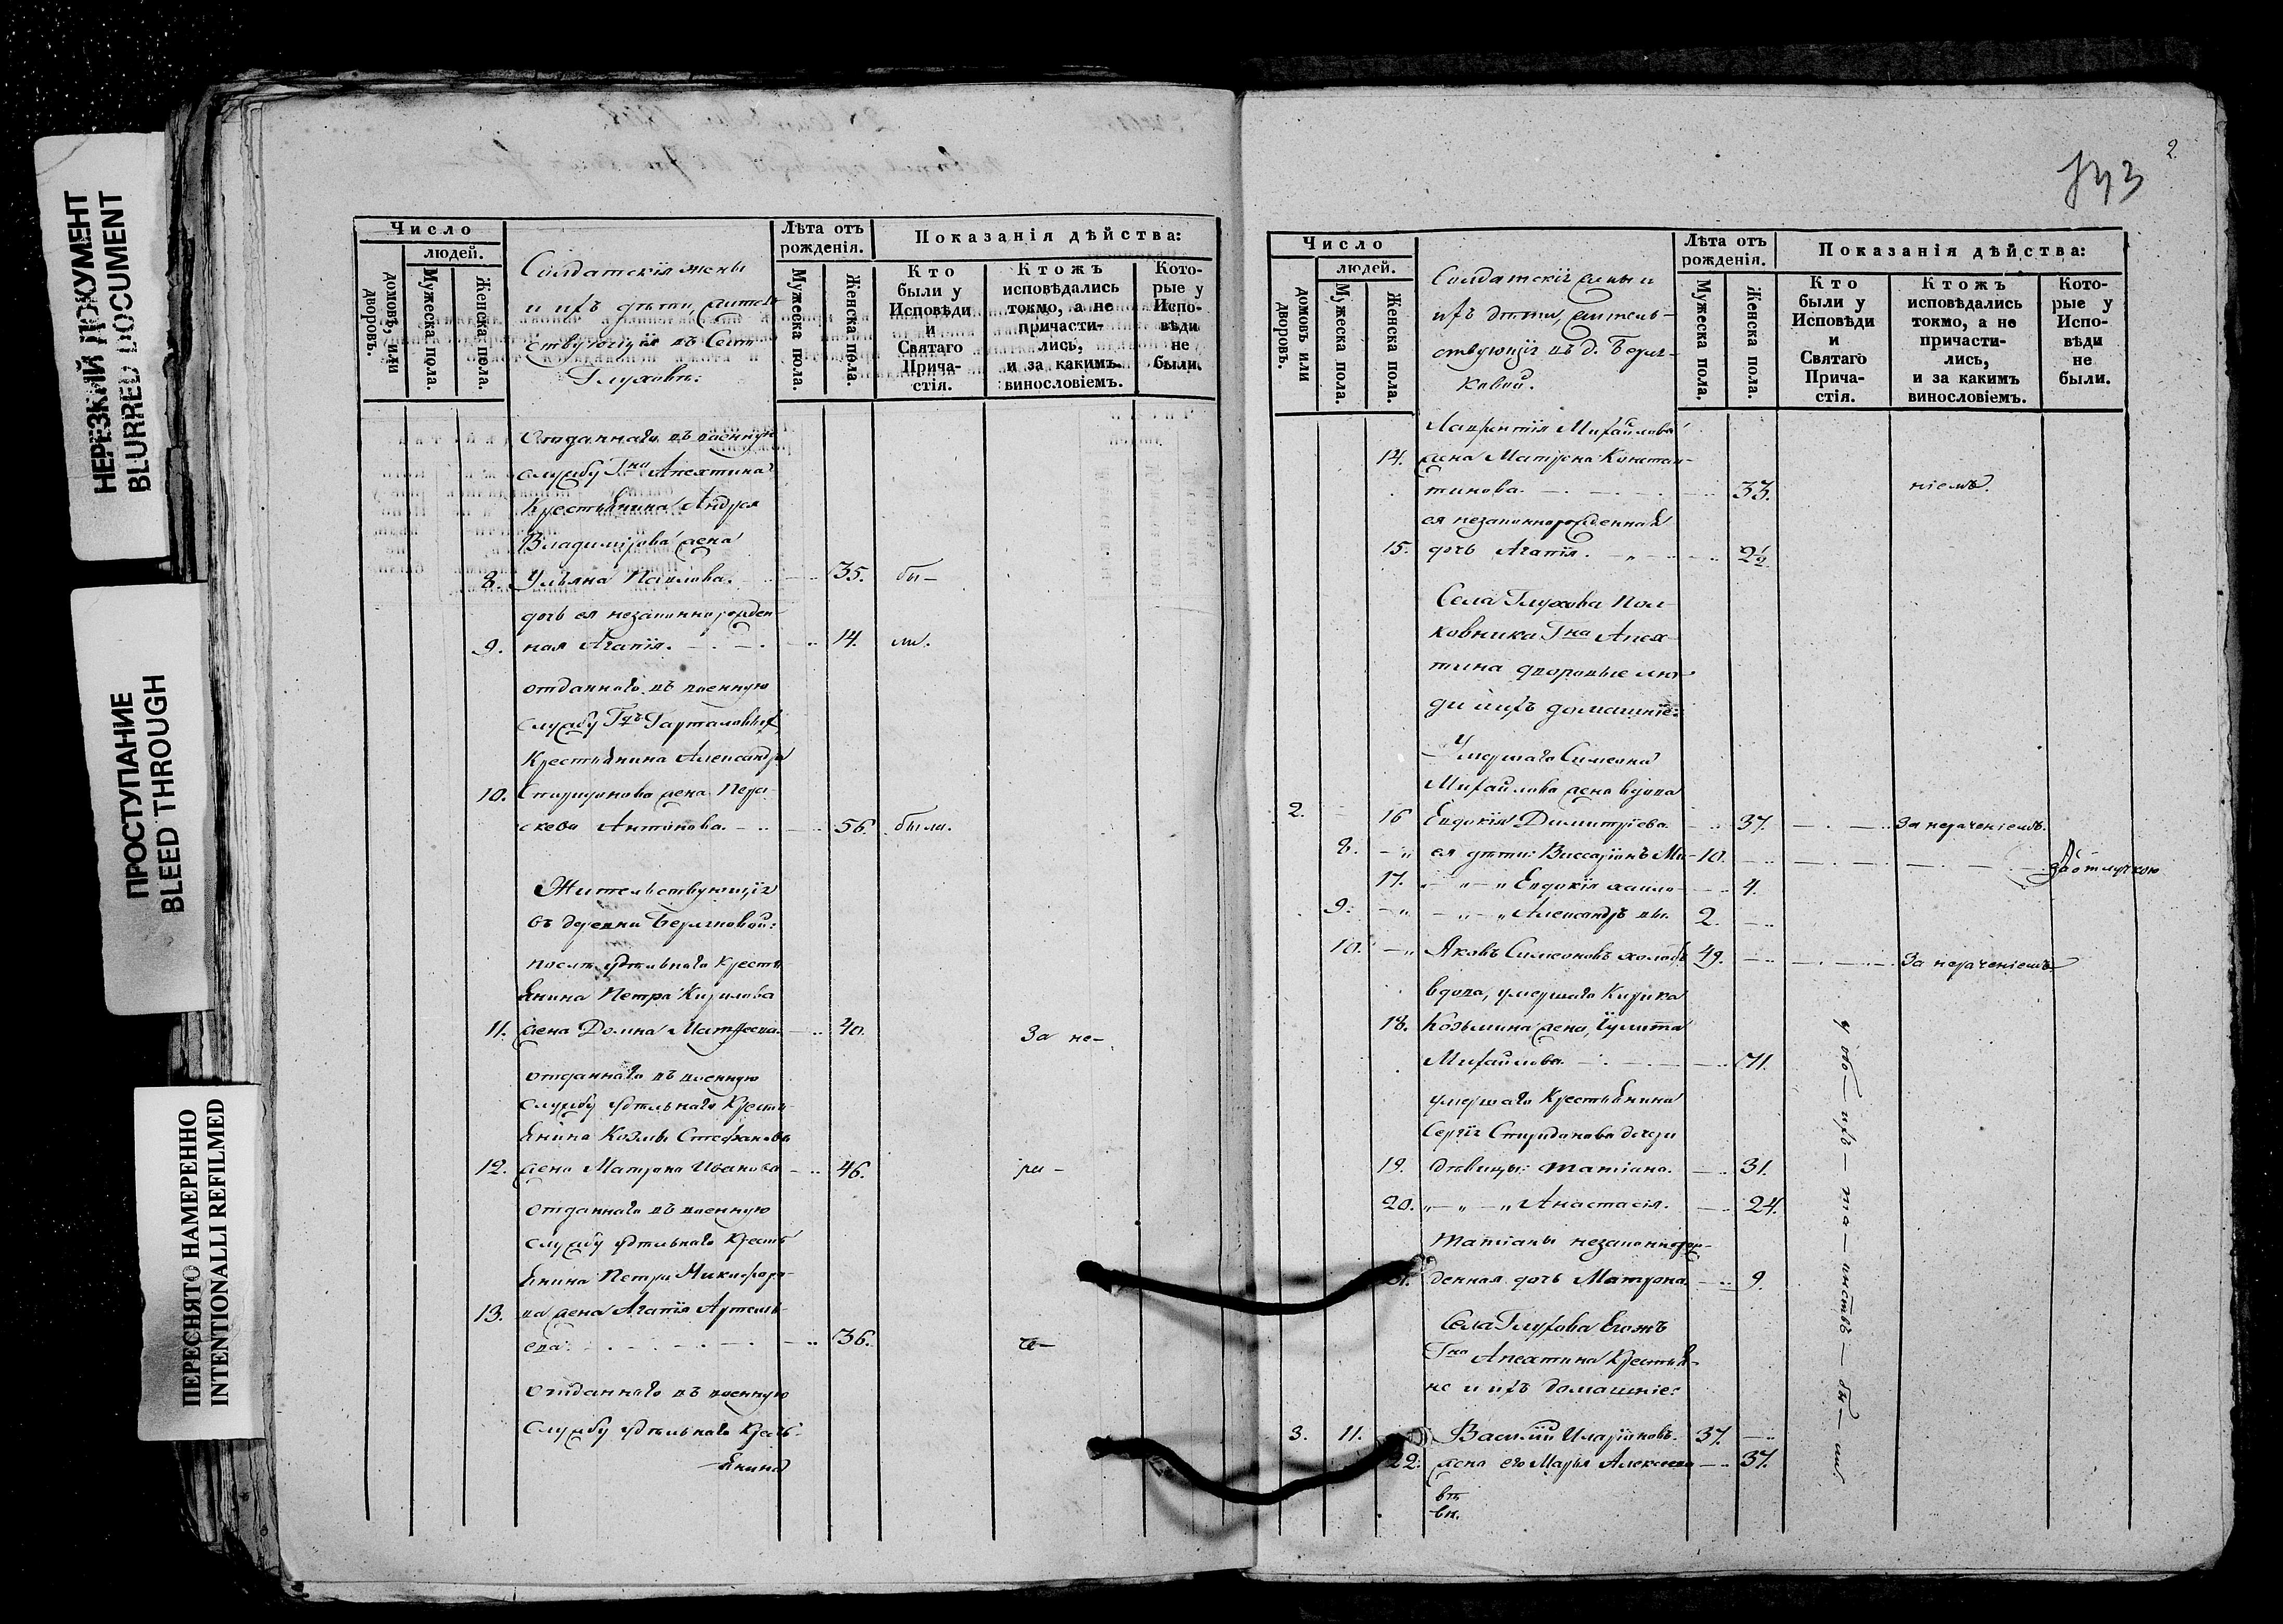 НЕРЕЗКИЙ ДОКУМЕНТ
BLURRED DOCUMENT
ПРОСТУПАНИЕ
BLEED THROUGH
ПЕРЕСНЯТО НАМЕРЕННО
INTENTIONALLI REFILMED
Число
людей.
домовъ, или дворовъ.
Мужеска пола.
Женска пола.
Солдатскія жены
и ихъ дѣти, житель
ствующія въ Селѣ
Глуховѣ:
Лѣта отъ рожденія.
Мужеска пола.
Женска пола.
Показанія дѣйства:
Кто были у Исповѣди и Святаго Прича- стія.
Ктожъ исповѣдались токмо, а не причасти- лись, и за какимъ винословіемъ.
Кото- рые у Испо- вѣди не были.
Отданнаго въ военную
службу Гна Апехтина
Крестьянина Андрея
Владимірова жена
8. Ульяна Павлова. 35. бы-
дочь ея незаконнорожден-
9. ная Агапія. 14. ли.
отданнаго въ военную
службу
Крестьянина Александра
10. Спиридонова жена Пера-
скева Антонова. 56. были.
Жительствующія
въ деревни
удѣльнаго Кресть
янина Петра Кирилова
11. жена Домна Матѳеева. 40. За не-
отданнаго въ военную
службу удѣльнаго Кресть-
янина Козмы Стефанова
12. жена Матрона Иванова 46. ра-
отданнаго въ военную
службу удѣльнаго Кресть
янина Петра Никифоро-
13. ва жена Агапія Артемь-
ева. 36. че-
отданнаго въ военную
службу удѣльнаго Кресть-
янина
2
743
Число
людей.
домовъ или дворовъ.
Мужеска пола.
Женска пола.
Солдатскія жены и
ихъ дѣти, житель-
ствующія въ д.
Лѣта отъ рожденія.
Мужеска пола.
Женска пола.
Показанія дѣйства:
Кто были у Исповѣди и Святаго Прича- стія.
Ктожъ исповѣдались токмо, а не причасти- лись, и за какимъ винословіемъ.
Кото- рые у Испо- вѣди не были.
Лаврентія Михайлова
14. жена Матрона Констан-
тинова. 33. ніемъ.
ея незаконнорожденная
15. дочь Агапія. 2½
Села Глухова Пол-
ковника Гна Апех-
тина дворовые лю-
ди и ихъ домашніе:
Умершаго Симеона
Михайлова жена вдова
2. 16 Евдокія Димитріева. 37. За нераченіемъ.
8. ея дѣти: Виссаріонъ Ми- 10. За отлучкою
17. Евдокія хайло- 4.
9. Александръ вы. 2.
10. Яковъ Симеоновъ холостъ 49. За нераченіемъ
вдова, умершаго Кирика
18. Козьмина жена, Іулитта
Михайлова. 71.
умершаго Крестьянина
Сергія Спиридонова дочери
19. дѣвицы: Татіана. 31.
20. Анастасія. 24.
Татіаны незаконнорож-
21. денная дочь Матрона. 9.
Села Глухова Егожъ
Гна Апехтина Крестья-
не и ихъ домашніе:
3. 11. Василій Иларіоновъ. 37.
22. жена его Марья Алексѣева 37.